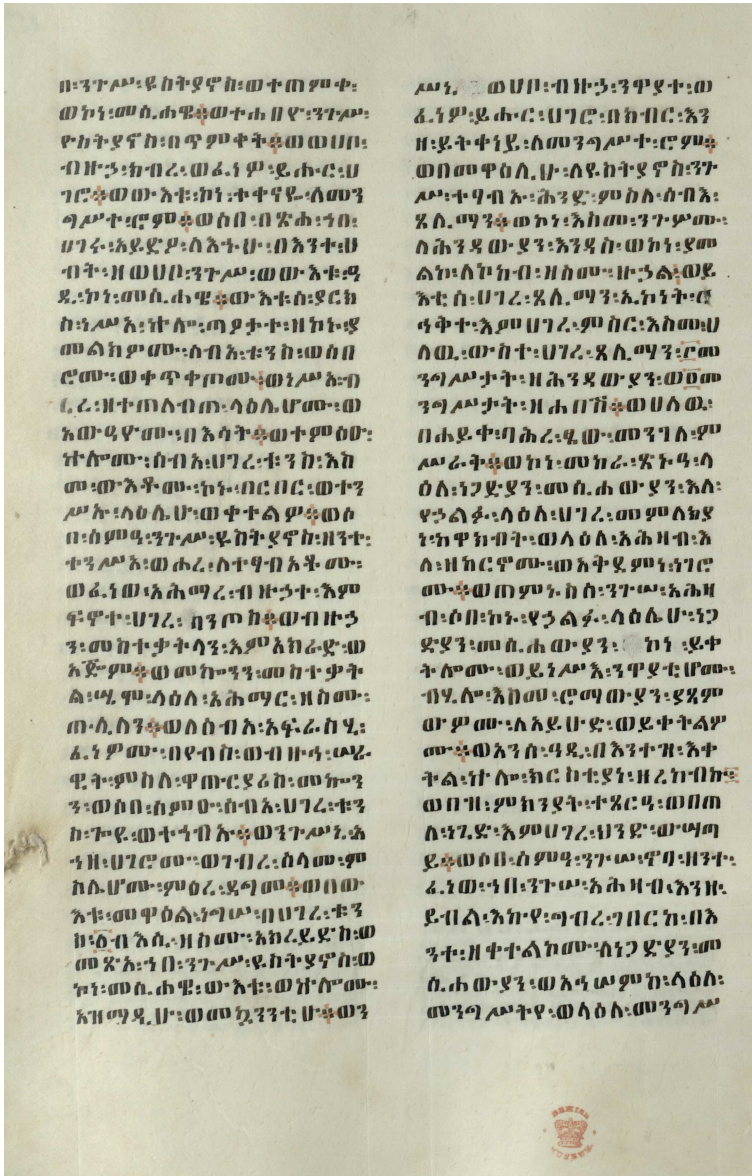 ዘ፡ንጉሥ፡ዩስትያኖስ፡ወተጠምቀ፡
ወኮነ፡መሲሐዌ፡ወተሐበየ፡ንጉሥ፡
ዮስትያኖስ፡በጥምቀት፡ወወሀቦ፡
ብዙኃ፡ክብረ፡ወፈነዎ፡ይሑር፡ሀ
ገሮ፡ወውእቱ፡ኮነ፡ተቀናዬ፡ለመን
ግሥተ፡ሮም፡ወሶበ፡በጽሐ፡ኀበ፡
ሀገሩ፡አይድዖ፡ለእኁሁ፡በእንተ፡ሀ
ብት፡ዘወሀቦ፡ንጉሥ፡ወውእቱ፡ዓ
ዲ፡ኮነ፡መሲሐዌ፡ውእቱሰ፡ያርክ
ስ፡ነሥአ፡ኵሎ፡ጣዖታተ፡ዘኮኑ፡ያ
መልክዎሙ፡ሰብአ፡ቱንክ፡ወሰበ
ሮሙ፡ወቀጥቀጦሙ፡ወነሥአ፡ብ
ሩረ፡ዘተጠለብጠ፡ላዕሌሆሙ፡ወ
አውዓዮሙ፡በእሳት፡ወተምዕዑ፡
ኵሎሙ፡ሰብአ፡ሀገረ፡ቱንክ፡እስ
መ፡ውእቶሙ፡ኮኑ፡በርበር፡ወተን
ሥኡ፡ላዕሌሁ፡ወቀተልዎ፡ወሶ
በ፡ሰምዓ፡ንጉሥ፡ዩስትያኖስ፡ዘንተ፡
ተንሥአ፡ወሖረ፡ለተፃብኦቶሙ፡
ወፈነወ፡አሕማረ፡ብዙኃተ፡እም
ፍኖተ፡ሀገረ፡ ጰንጦስ፡ወብዙኃ
ን፡መስተቃትላን፡እምእክራድ፡ወ
አጅም፡ወመኰንን፡መስተቃት
ል፡ሤሞ፡ላዕለ፡አሕማር፡ዘስሙ፡
ጠሊለን፡ወለሰብአ፡አፍራስሂ፡
ፈነዎሙ፡በየብስ፡ወብዙኅ፡ሠራ
ዊት፡ምስለ፡ዋጡርያሪስ፡መኰን
ን፡ወሶበ፡ሰምዑ፡ሰብአ፡ሀገረ፡ቱን
ክ፡ጐዩ፡ወተኀብኡ፡ወንጉሥኒ፡አ
ኀዘ፡ሀገሮሙ፡ወገብረ፡ሰላመ፡ም
ስሌሆሙ፡ምዕረ፡ዳግመ፡ወበው
እቱ፡መዋዕል፡ነግሠ፡በሀገረ፡ቱን
ክ፡፩ብእሲ፡ዘስሙ፡አክራይድስ፡ወ
መጽአ፡ኀበ፡ንጉሥ፡ዩስትያኖስ፡ወ
ኮነ፡መሲሐዌ፡ውእቱ፡ወኵሎሙ፡
አዝማዲሁ፡ወመኳንንቲሁ፡ወን
ሥኒ፡ ወሀቦ፡ብዙኃ፡ንዋያተ፡ወ
ፈነዎ፡ይሑር፡ሀገሮ፡በክብር፡እን
ዘ፡ይትቀነይ፡ለመንግሥተ፡ሮም፡
ወበመዋዕሊሁ፡ለዩስትያኖስ፡ንጉ
ሥ፡ተፃብኡ፡ሕንድ፡ምስለ፡ሰብአ፡
ጸሊማን፡ወኮነ፡እስመ፡ንጉሦሙ፡
ለሕንዳውያን፡እንዳስ፡ወኮነ፡ያመ
ልኮ፡ለኮከብ፡ዘስሙ፡ዙኃል፡ወይ
እቲሰ፡ሀገረ፡ጸሊማን፡ኢኮነት፡ር
ኅቅተ፡እምሀገረ፡ምስር፡እስመ፡ሀ
ለዉ፡ውስተ፡ሀገረ፡ጸሊማን፡፫መ
ንግሥታት፡ዘሕንዳውያን፡ወ፬መ
ንግሥታት፡ዘሐበሽ፡ወሀለዉ፡
በሐይቀ፡ባሕረ፡ፄው፡መንገለ፡ም
ሥራቅ፡ወኮነ፡መከራ፡ጽኑዓ፡ላ
ዕለ፡ነጋድያን፡መሲሐውያን፡እለ፡
የኃልፉ፡ላዕለ፡ሀገረ፡መምለክያ
ነ፡ከዋክብት፡ወላዕለ፡አሕዛብ፡እ
ለ፡ዘከርኖሙ፡ወአቅደምነ፡ነገሮ
ሙ፡ወጠምኑስ፡ንጉሠ፡አሕዛ
ብ፡ሶበ፡ኮኑ፡የኃልፉ፡ላዕሌሁ፡ነጋ
ድያን፡መሲሐውያን፡ ኮነ፡ይቀ
ትሎሙ፡ወይነሥእ፡ንዋያቲሆሙ፡
ብሂሎ፡እስመ፡ሮማውያን፡ያጸም
ውዎሙ፡ለአይሁድ፡ወይቀትልዎ
ሙ፡ወአንሰ፡ዓዲ፡በእንተዝ፡እቀ
ትል፡ኵሎ፡ክርስቲያነ፡ዘረከብኩ፡
ወበዝ፡ምክንያት፡ተጸርዓ፡ወበጠ
ለ፡ነጊድ፡እምሀገረ፡ህንድ፡ውሣጣ
ይ፡ወሶበ፡ሰምዓ፡ንጉሠ፡ኖባ፡ዘንተ፡
ፈነወ፡ኀበ፡ንጉሠ፡አሕዛብ፡እንዘ፡
ይብል፡እኩየ፡ግብረ፡ገበርከ፡በእ
ንተ፡ዘቀተልኮሙ፡ለነጋድያን፡መ
ሲሐውያን፡ወአኅሠምከ፡ላዕለ፡
መንግሥትየ፡ወላዕለ፡መንግሥ